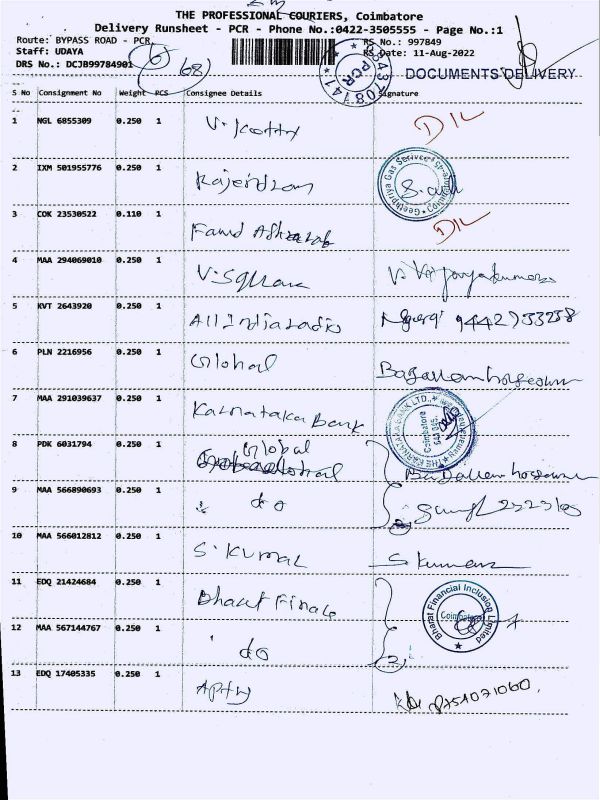 THE PROFESSIONAL COURIERS, Coimbatore
Delivery Runsheet - PCR - Phone No.:0422-3505555 - Page No.:1
Route: BYPASS ROAD - PCR, RS No.: 997849
Staff: UDAYA RS Date: 11-Aug-2022
DRS No.: DCJB99784901 (68) PCR DOCUMENTS DELIVERY
S No Consignment No Weight PCS Consignee Details Signature
1 NGL 6855309 0.250 1 D/L
2 IXM 501955776 0.250 1 Rajendran Geethpriya Gas Serivce Coimbatore
3 COK 23530522 0.110 1 D/L
4 MAA 294069010 0.250 1 V. Square
5 KVT 2643920 0.250 1 All India radio
6 PLN 2216956 0.250 1 Global
7 MAA 291039637 0.250 1 Karnataka Bank THE KARNATAKA BANK LTD., Coimbatore
8 PDK 6031794 0.250 1 Global
9 MAA 566890693 0.250 1 do
10 MAA 566012812 0.250 1 S. Kumar S Kumar
11 EDQ 21424684 0.250 1 Bharat Financial Inclusion Limited Coimbatore
12 MAA 567144767 0.250 1 do
13 EDQ 17405335 0.250 1